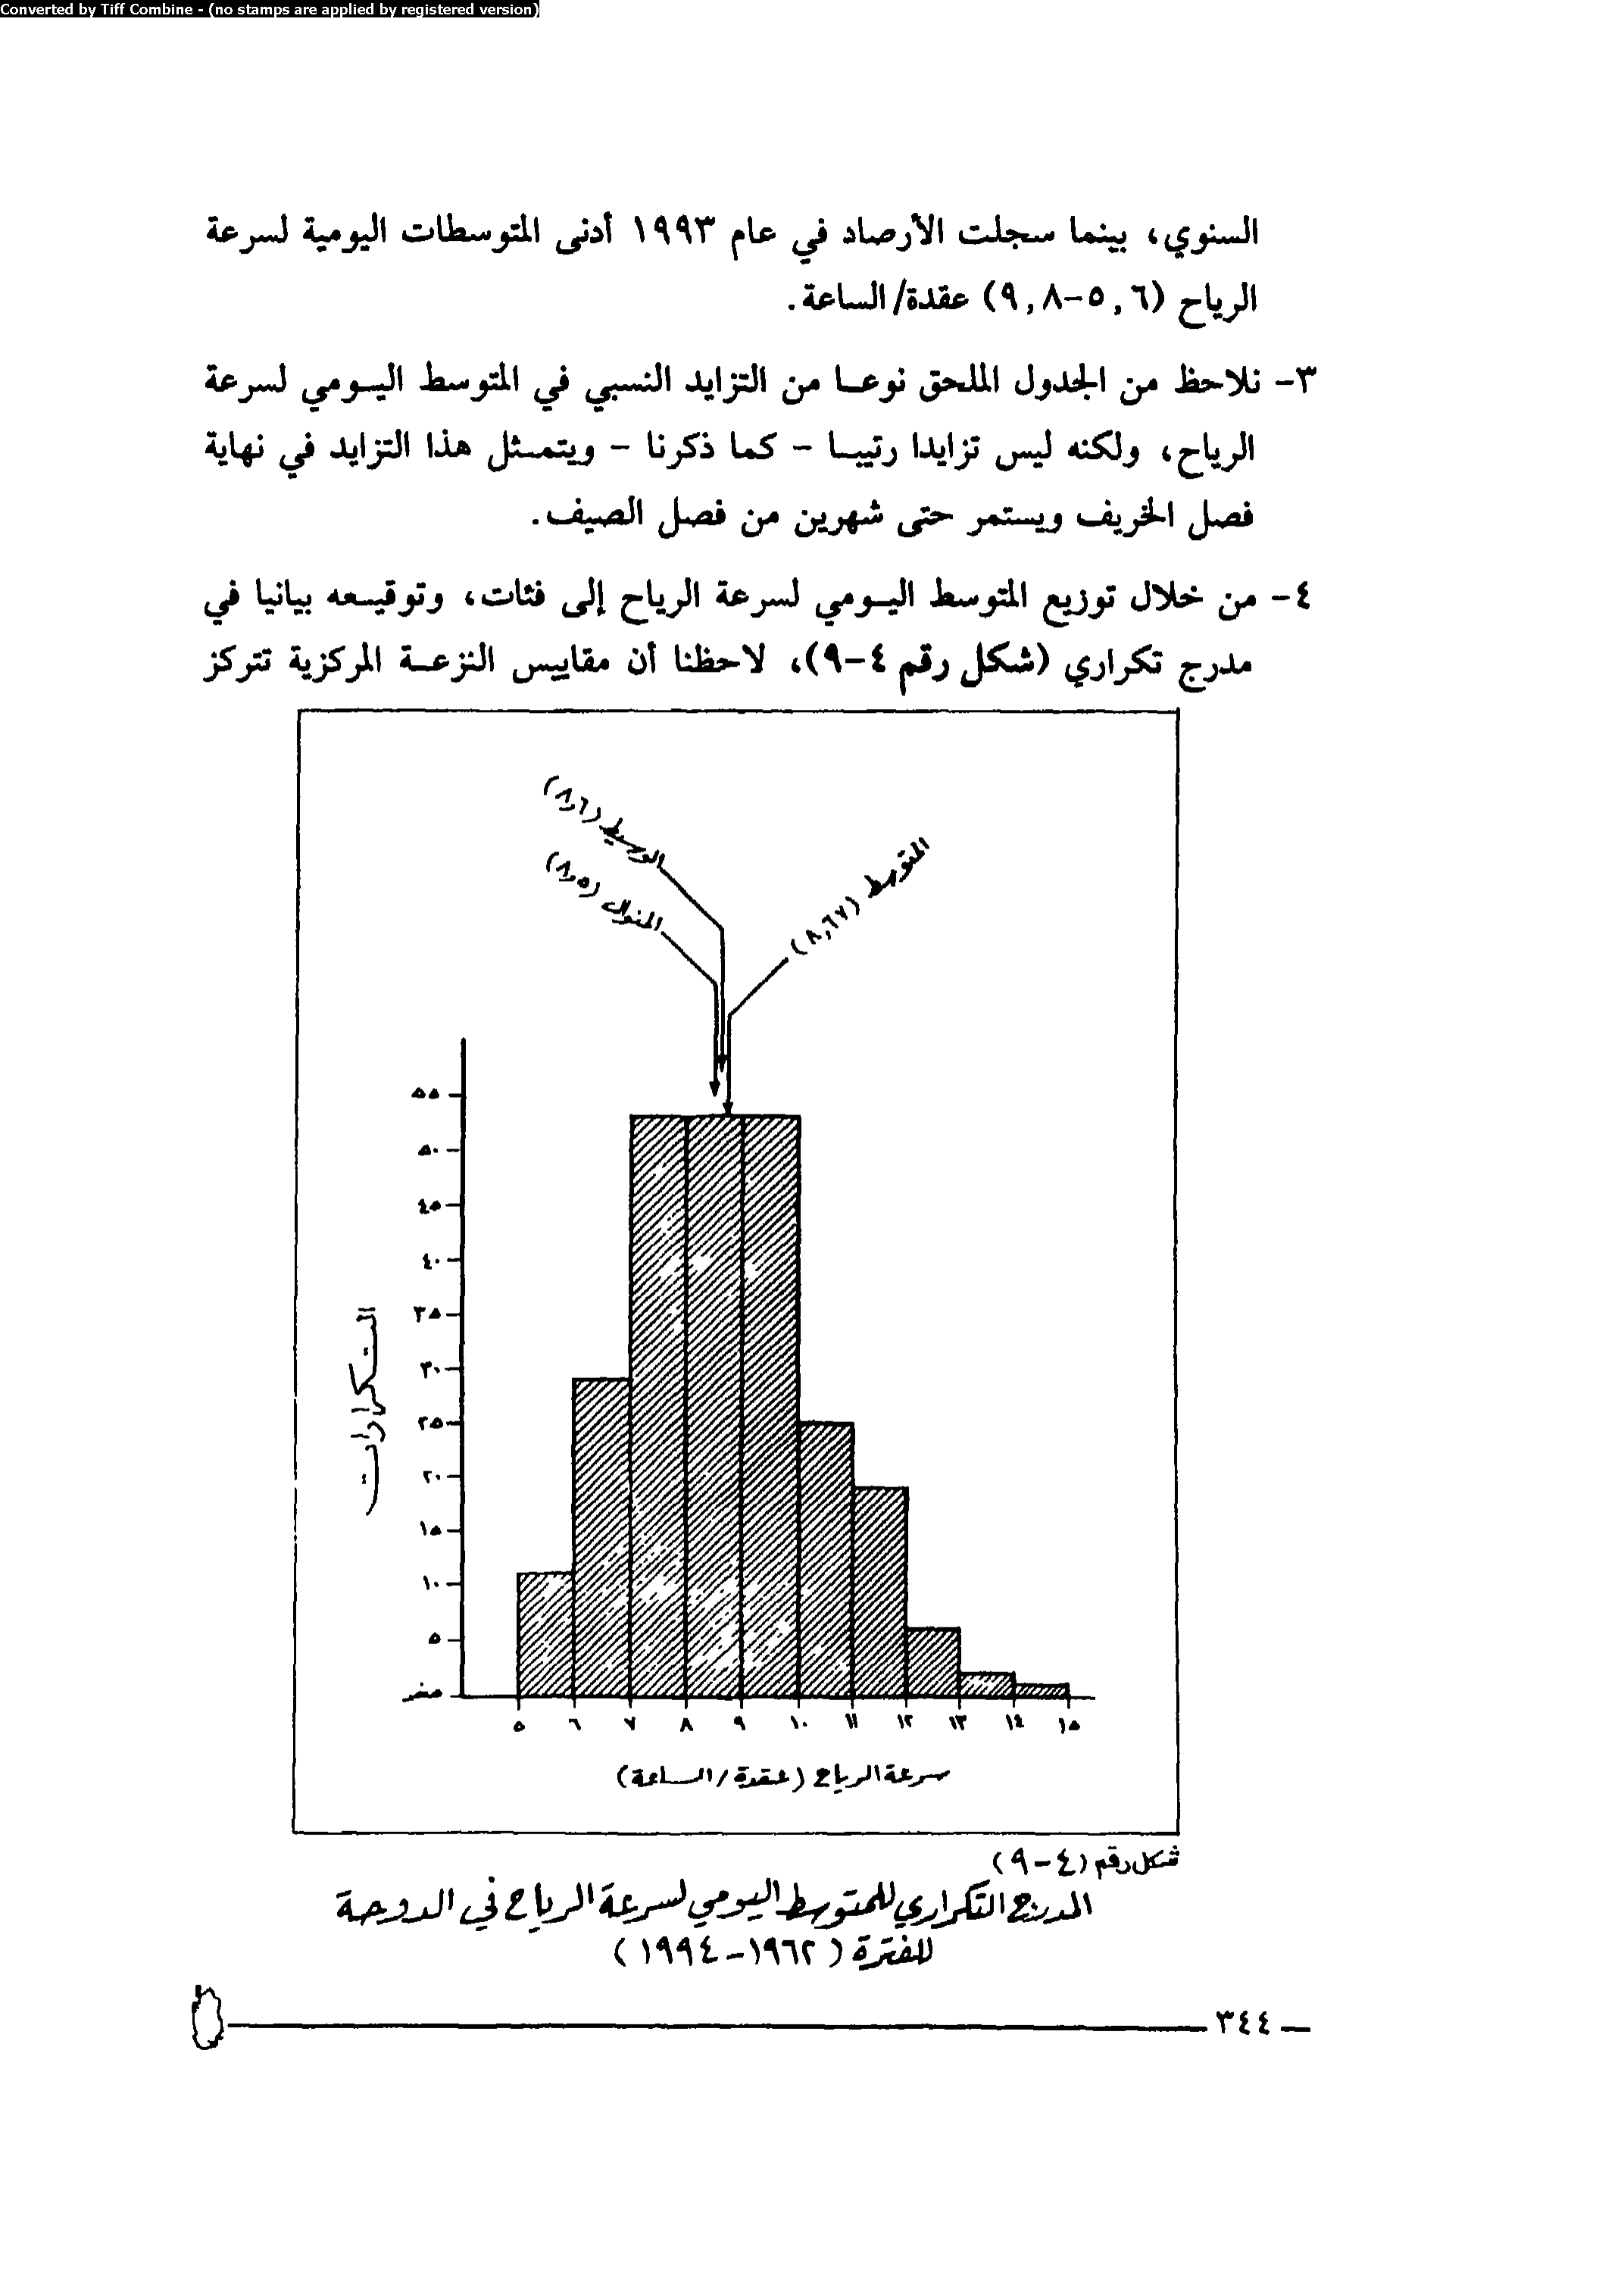 Converted by Tiff Combine - (no stamps are applied by registered version)
السنوي، بينما سجلت الأرصاد في عام ١٩٩٣ أدنى المتوسطات اليومية لسرعة
الرياح (٥,٦-٩,٨) عقدة/الساعة.
٣- نلاحظ من الجدول الملحق نوعا من التزايد النسبي في المتوسط اليومي لسرعة
الرياح، ولكنه ليس تزايدا رتيبا - كما ذكرنا - ويتمثل هذا التزايد في نهاية
فصل الخريف ويستمر حتى شهرين من فصل الصيف.
٤- من خلال توزيع المتوسط اليومي لسرعة الرياح إلى فئات، وتوقيعه بيانيا في
مدرج تكراري (شكل رقم ٤-٩)، لاحظنا أن مقاييس النزعة المركزية تتركز
الوسيط (٨,٦)
المنوال (٨,٥)
المتوسط (٨,٦٧)
٥٥
٥٠
٤٥
٤٠
٣٥
٣٠
٢٥
٢٠
١٥
١٠
٥
صفر
التكرارات
٥ ٦ ٧ ٨ ٩ ١٠ ١١ ١٢ ١٣ ١٤ ١٥
سرعة الرياح (عقدة/الساعة)
شكل رقم (٤-٩)
المدرج التكراري للمتوسط اليومي لسرعة الرياح في الدوحة
للفترة (١٩٦٢-١٩٩٤)
٣٤٤